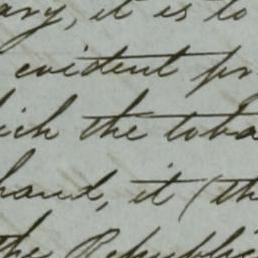 ary, it is to
evident pr
ich the toba
hand, it (th
the Republic